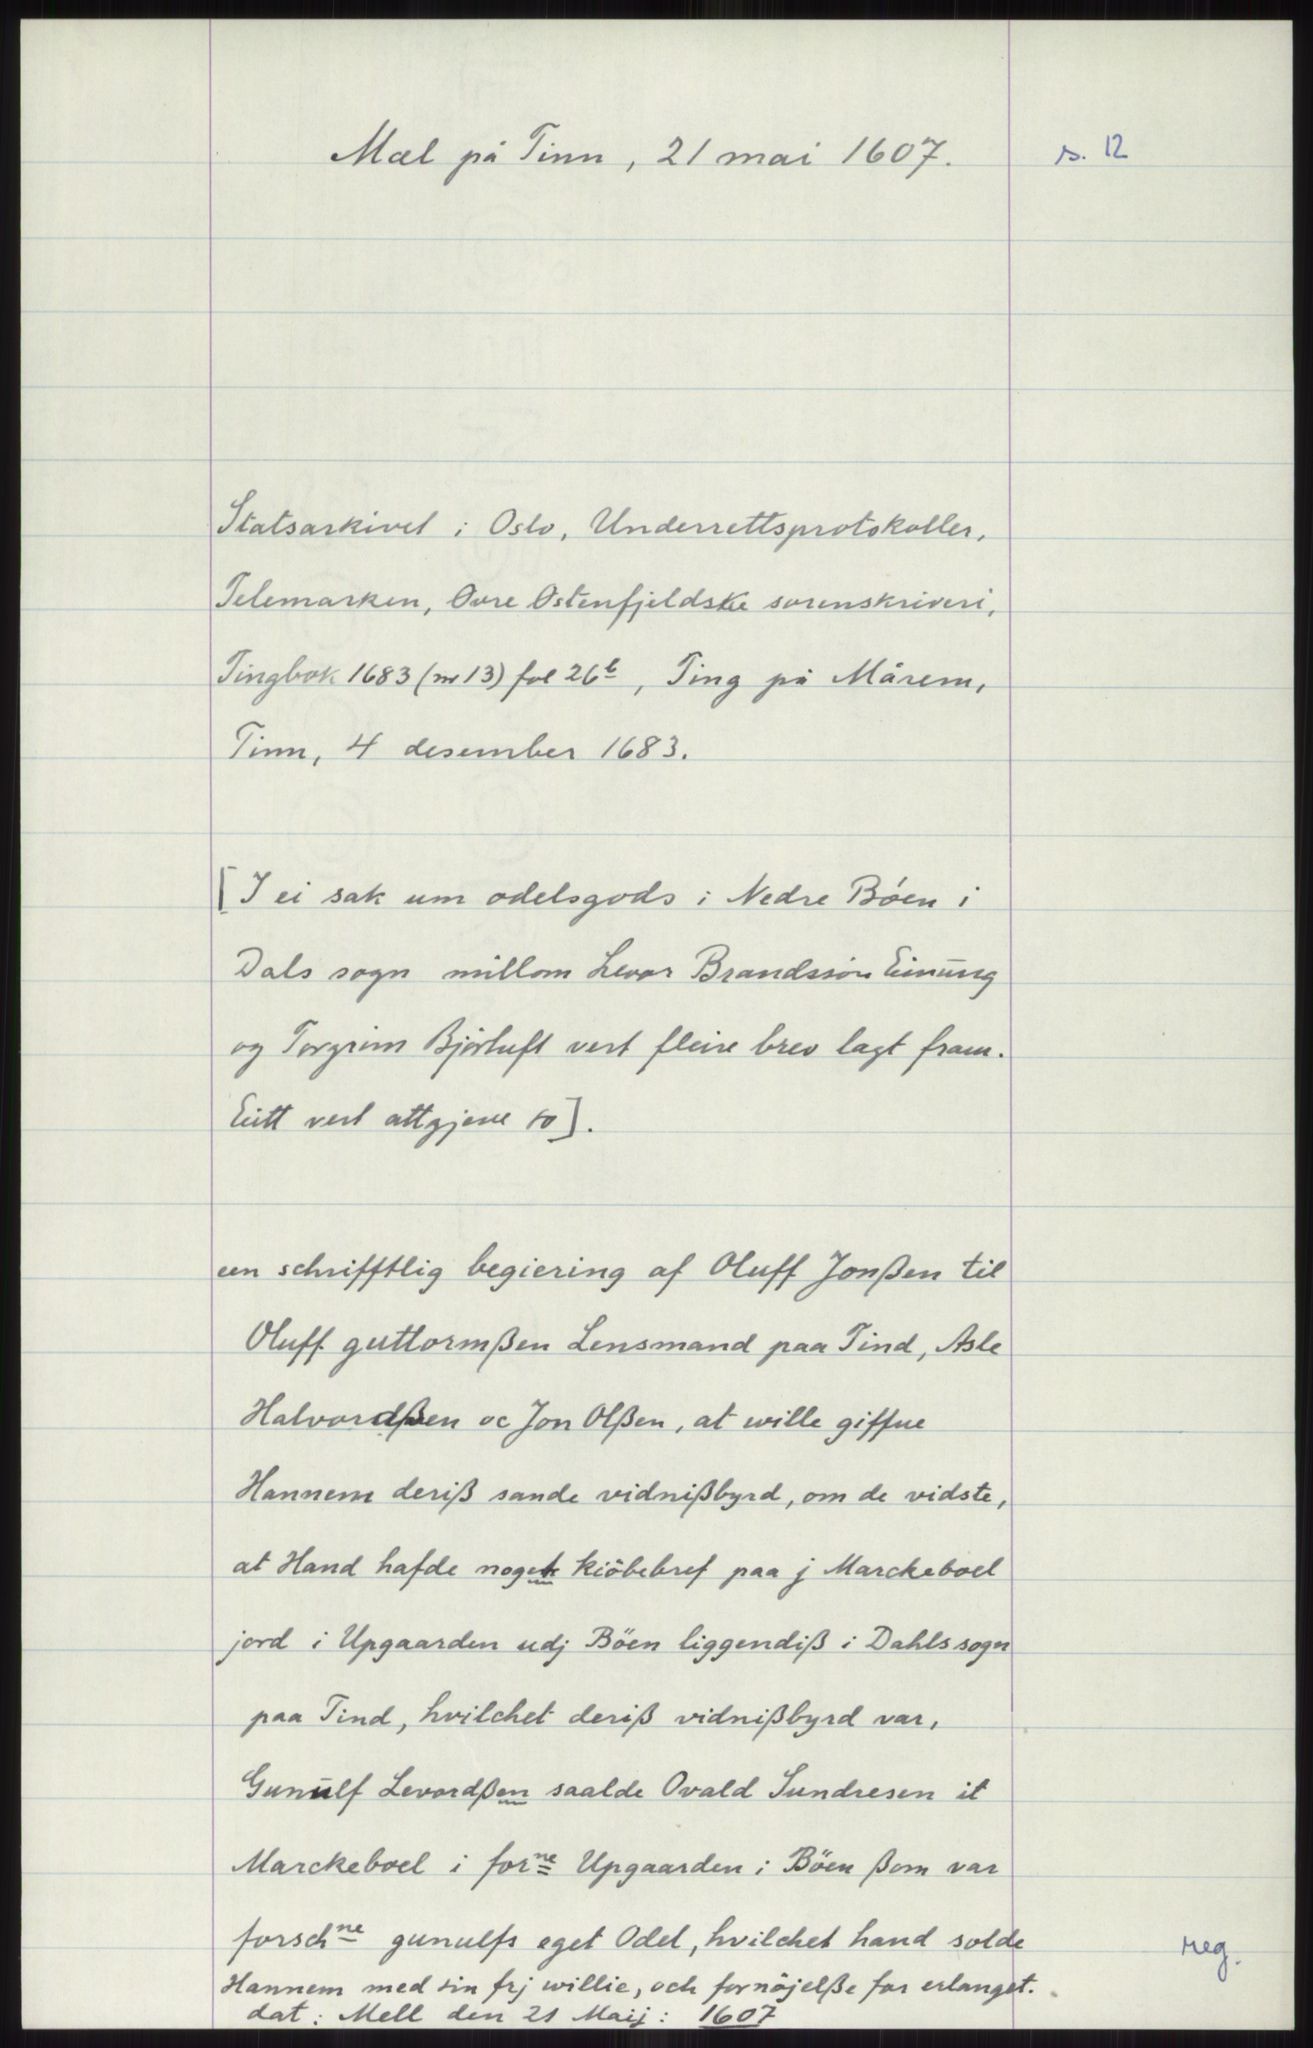 Mæl på Tinn, 21 mai 1607.
s. 12
Statsarkivet i Oslo, Underrettsprotokoller,
Telemarken, Øvre Østenfjeldske sorenskriveri,
Tingbok 1683 (nr 13) fol 26b, Ting på Mårem,
Tinn, 4 desember 1683.
[I ei sak um odelsgods i Nedre Böen i
Dals sogn millom Levor Brandssön Einung
og Torgrim Björtuft vert fleire brev lagt fram.
Eitt vert attgjeve so].
een schrifftlig begiering af Oluff Jonßen til
Oluff guttormßen Lensmand paa Tind, Asle
Halvordßen oc Jon Olßen, at wille giffue
Hannem deriß sande vidnißbyrd, om de vidste,
at Hand hafde noget kiöbebref paa j Marckeboel
jord i Upgaarden udj Böen liggendiß i Dahls sogn
paa Tind, hvilchet deriß vidnißbyrd var,
Gunulf Levordßen saalde Ovald Sundresen it
Marckeboel i forne Upgaarden i Böen ßom var
forschne gunulfs eget Odel, hvilchet hand solde
Hannem med sin frj willie, och fornöjelße for erlanget.
dat: Mell den 21 Maij: 1607
reg.